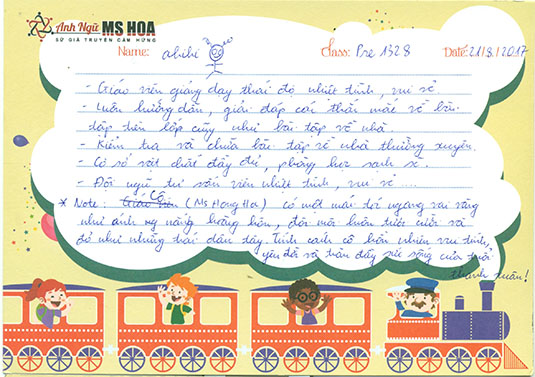 Anh Ngữ MS HOA
SỨ GIẢ TRUYỀN CẢM HỨNG
Name: ahihi Class: Pre 1328 Date: 21/8/2017
- Giáo viên giảng dạy thái độ nhiệt tình, vui vẻ.
- Luôn hướng dẫn, giải đáp các thắc mắc về bài
tập trên lớp cũng như bài tập về nhà.
- Kiểm tra và chữa bài tập về nhà thường xuyên.
- Cơ sở vật chất đầy đủ, phòng học sạch sẽ.
- Đội ngũ tư vấn viên nhiệt tình, vui vẻ ....
* Note: Cô (Ms Hong Hoa) có một mái tóc ngang vai vàng
như ánh nắng hoàng hôn, đôi môi luôn tươi cười và
đỏ như những trái dâu tây. Tính cách cô hồn nhiên vui tính,
yêu đời và tràn đầy sức sống của tuổi
thanh xuân!